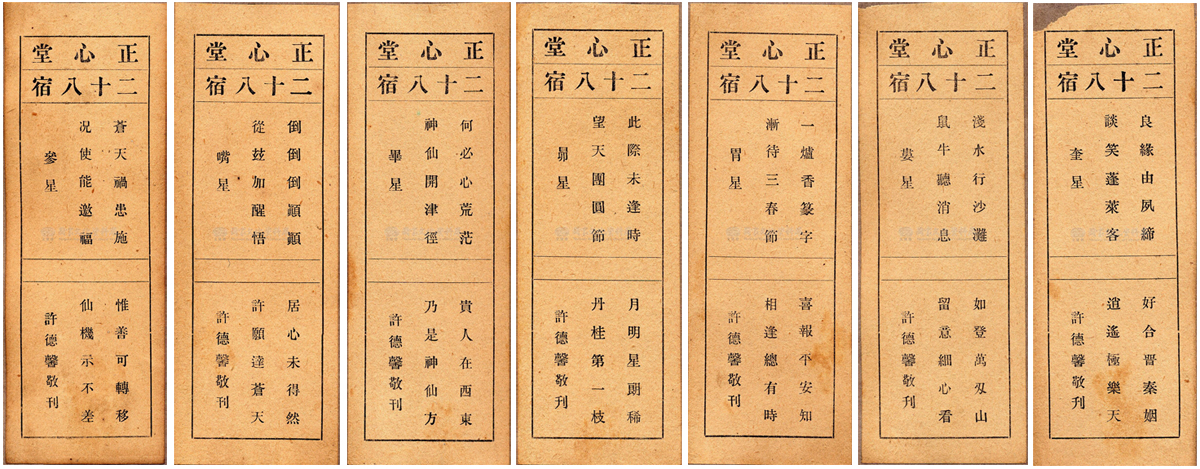 正心堂
二十八宿
良緣由夙締
談笑蓬萊客
奎星
好合晋秦姻
逍遙極樂天
許德馨敬刊
正心堂
二十八宿
淺水行沙灘
鼠牛聽消息
婁星
如登萬刄山
留意細心看
許德馨敬刊
正心堂
二十八宿
一爐香篆字
漸待三春節
胃星
喜報平安知
相逢總有時
許德馨敬刊
正心堂
二十八宿
此際未逢時
望天團圓節
昴星
月明星朗稀
丹桂第一枝
許德馨敬刊
正心堂
二十八宿
何必心荒茫
神仙開津徑
畢星
貴人在西東
乃是神仙方
許德馨敬刊
正心堂
二十八宿
倒倒倒顚顚
從玆加醒悟
嘴星
居心未得然
許願達蒼天
許德馨敬刊
正心堂
二十八宿
蒼天禍患施
况使能邀福
參星
惟善可轉移
仙機示不差
許德馨敬刊